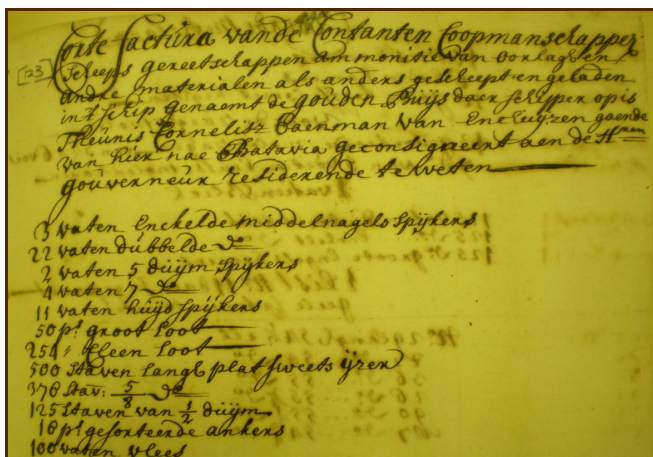 Corte Factura vande Contanten Coopmanschappen
[123] Scheeps gereetschappen ammonitie van oorlagh en
andre materialen als anders gescheept en geladen
int schip genaemt de gouden Buijs daer schipper op is
Theunis Cornelisz Baenman van Enchuyzen gaende
van hier nae Batavia geconsigneert aen de Hren
gouverneur residerende te weten
3 vaten Enckelde middelnagels Spijkers
22 vaten dubbelde do
2 vaten 5 duijm Spijkers
4 vaten 7 do
11 vaten huijd spijkers
50 ps groot Loot
254 " Cleen Loot
500 Staven langh plat sweets ijzer
376 Stav: 5/8 do
125 Staven van 1/2 duijm
18 ps gesorteerde ankers
100 vaten vlees